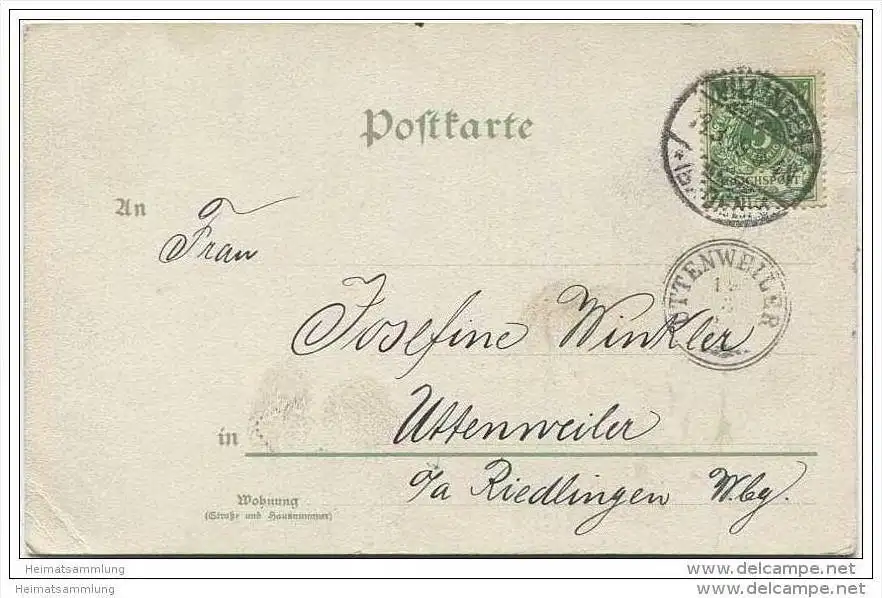 Postkarte
5
REICHSPOST
UTTENWEILER
An
Frau
Josefine Winkler
in Uttenweiler
o/a Riedlingen W.bg.
Wohnung
(Straße und Hausnummer)
Heimatsammlung
Heimatsammlung
www.delcampe.net
www.delcampe.net